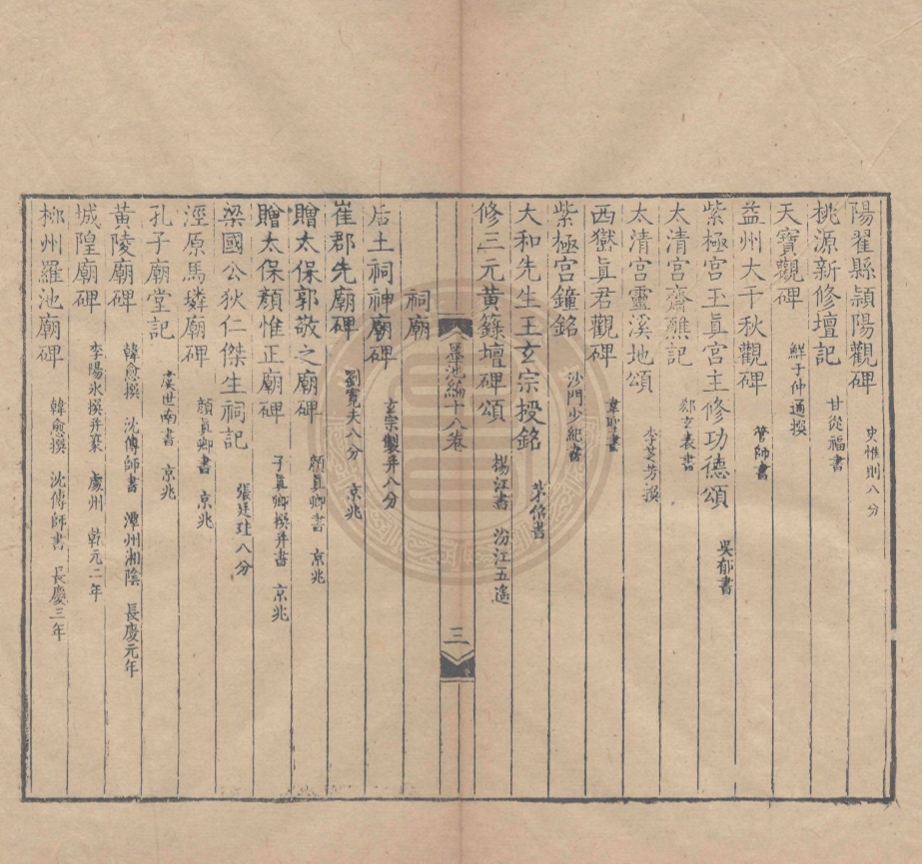 陽翟縣頴陽觀碑 史惟則八分
桃源新修壇記 甘從福書
天寶觀碑 鮮于仲通撰
益州大千秋觀碑 管師書
紫極宮玉眞宮主修功德頌 吳郁書
太清宮齋醮記 玄表書
太清宮靈溪地頌 李芝芳撰
西嶽眞君觀碑 書
紫極宮鐘銘 沙門少紀書
大和先生王玄宗授銘 書
修三元黃籙壇碑頌 楊江書 汾江五遙
墨池編十八卷
三
祠廟
后土祠神廟碑 玄宗製并八分
崔郡先廟碑 劉寬夫八分 京兆
贈太保郭敬之廟碑 顔眞卿書 京兆
贈太保顏惟正廟碑 子眞卿撰并書 京兆
梁國公狄仁傑生祠記 張廷珪八分
涇原馬璘廟碑 顔眞卿書 京兆
孔子廟堂記 虞世南書 京兆
黃陵廟碑 韓愈撰 沈傳師書 潭州湘陰 長慶元年
城隍廟碑 李陽氷撰并篆 處州 乾元二年
柳州羅池廟碑 韓愈撰 沈傳師書 長慶三年